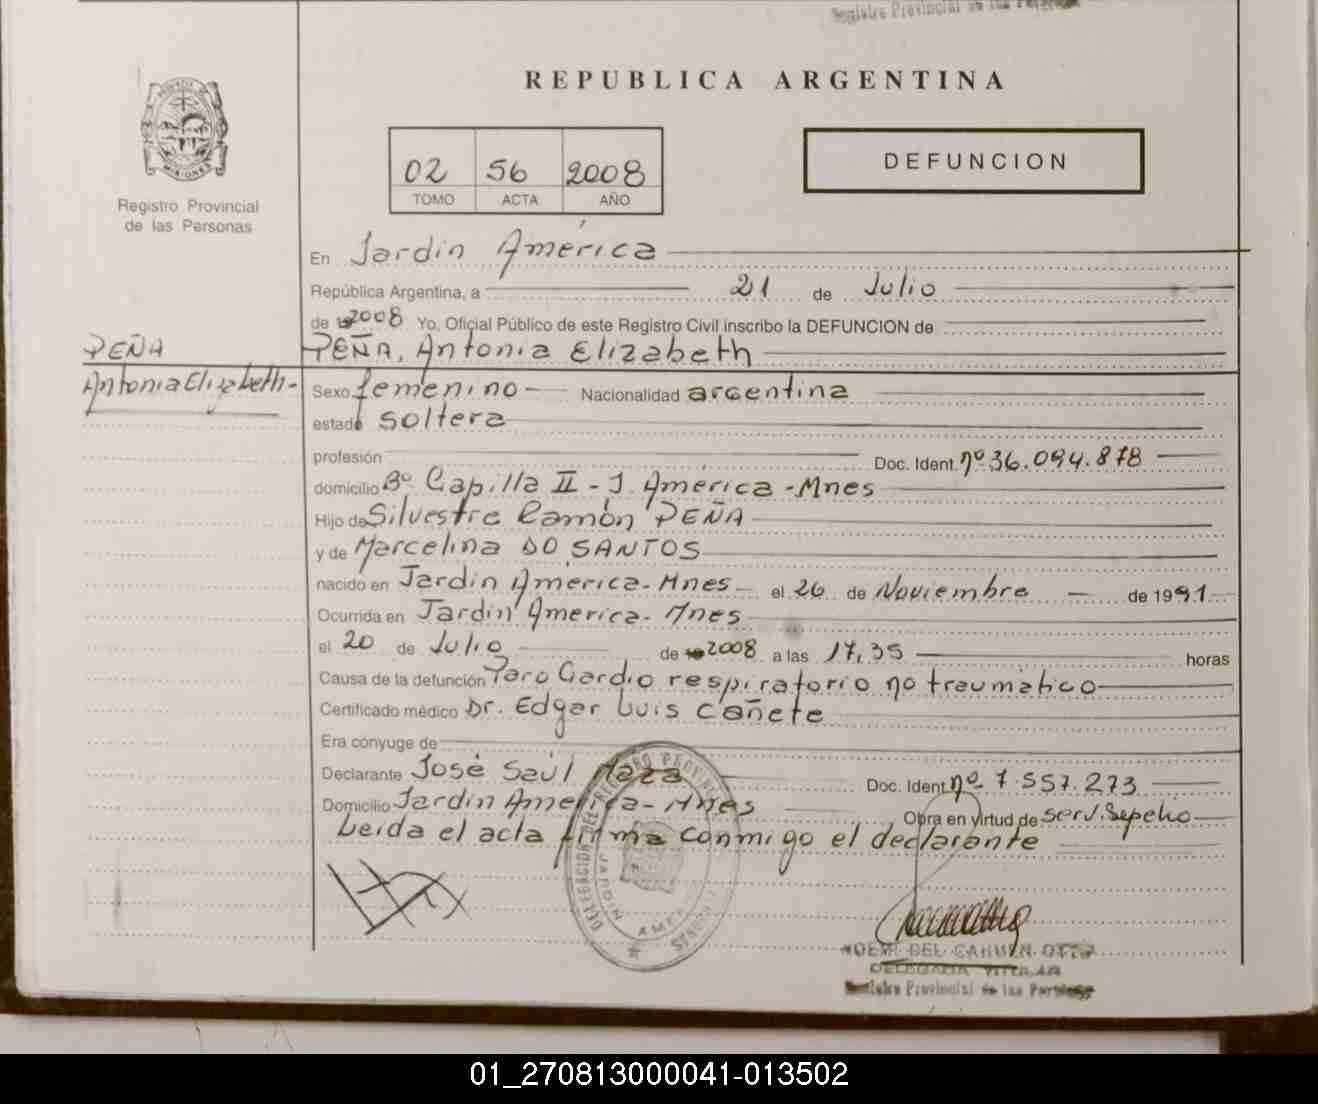 Registro Provincial de las Personas
REPUBLICA ARGENTINA
MISIONES
Registro Provincial
de las Personas
02 56 2008
TOMO ACTA AÑO
DEFUNCION
En Jardín América
República Argentina, a 21 de Julio
de 2008 Yo, Oficial Público de este Registro Civil inscribo la DEFUNCION de
PEÑA
PEÑA, Antonia Elizabeth
Antonia Elizabeth-
Sexo femenino Nacionalidad argentina
estado soltera
profesión Doc. Ident. nº 36.094.878
domicilio Bº Capilla II - J. América - Mnes
Hijo de Silvestre Ramón PEÑA
y de Marcelina DO SANTOS
nacido en Jardín América - Mnes el 26 de Noviembre de 1991
Ocurrida en Jardín America - Mnes
el 20 de Julio de 2008 a las 17,35 horas
Causa de la defunción Paro Cardio respiratorio no traumático
Certificado médico Dr. Edgar Luis Cañete
Era cónyuge de
Declarante José Saúl Maza Doc. Ident. nº 7.557.273
Domicilio Jardín América - Mnes Obra en virtud de serv. Sepelio
Leida el acta firma conmigo el declarante
DELEGACION DEL REGISTRO PROVINCIAL
JARDIN AMERICA
MISIONES
NOEMI DEL CARMEN
DELEGADA TITULAR
Registro Provincial de las Personas
01_270813000041-013502